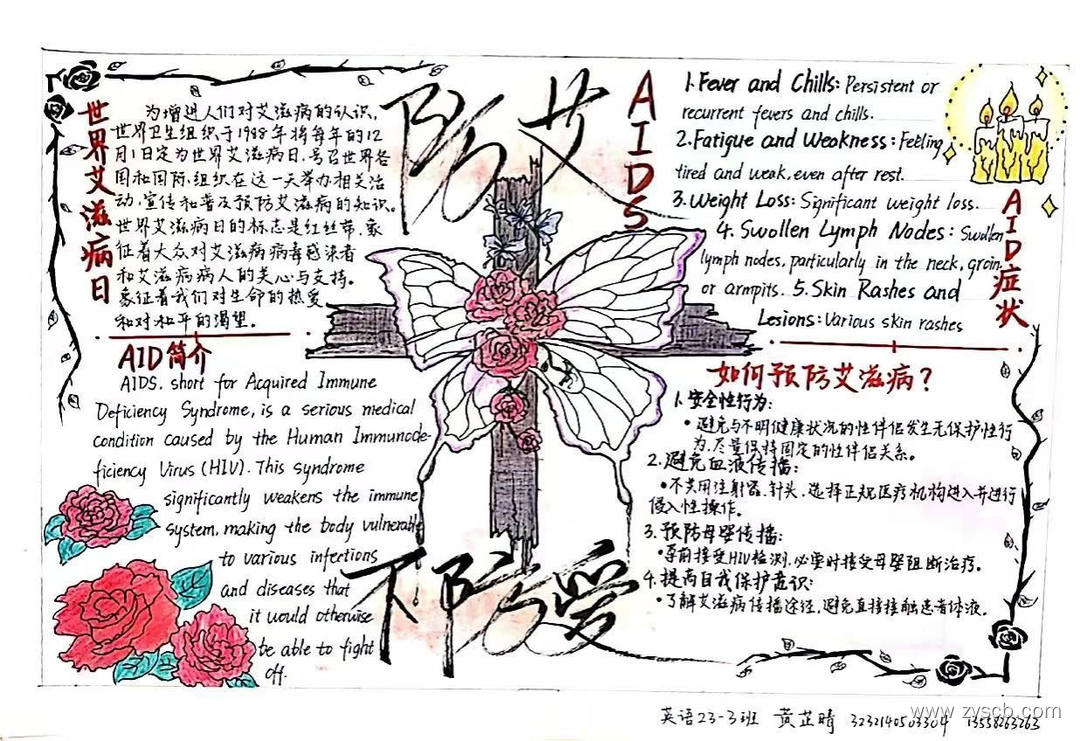 世界艾滋病日
为增进人们对艾滋病的认识,
世界卫生组织于1988年将每年的12
月1日定为世界艾滋病日,号召世界各
国和国际组织在这一天举办相关活
动,宣传和普及预防艾滋病的知识。
世界艾滋病日的标志是红丝带,象
征着大众对艾滋病病毒感染者
和艾滋病病人的关心与支持。
象征着我们对生命的热爱
和对和平的渴望。
AID简介
AIDS, short for Acquired Immune
Deficiency Syndrome, is a serious medical
condition caused by the Human Immunode-
ficiency Virus (HIV). This syndrome
significantly weakens the immune
system, making the body vulnerable
to various infections
and diseases that
it would otherwise
be able to fight
off.
防艾
不防爱
AIDS
1.Fever and Chills: Persistent or
recurrent fevers and chills.
2.Fatigue and Weakness: Feeling
tired and weak, even after rest.
3.Weight Loss: Significant weight loss.
4. Swollen Lymph Nodes: Swollen
lymph nodes, particularly in the neck, groin,
or armpits. 5.Skin Rashes and
Lesions: Various skin rashes
AID症状
如何预防艾滋病?
1.安全性行为:
•避免与不明健康状况的性伴侣发生无保护性行
为,尽量保持固定的性伴侣关系。
2.避免血液传播:
•不共用注射器、针头,选择正规医疗机构进入并进行
侵入性操作。
3.预防母婴传播:
•孕前接受HIV检测,必要时接受母婴阻断治疗。
4.提高自我保护意识:
•了解艾滋病传播途径,避免直接接触患者体液。
英语23-3班 黄芷晴 3232140503304 13538263263
www.zyscb.com